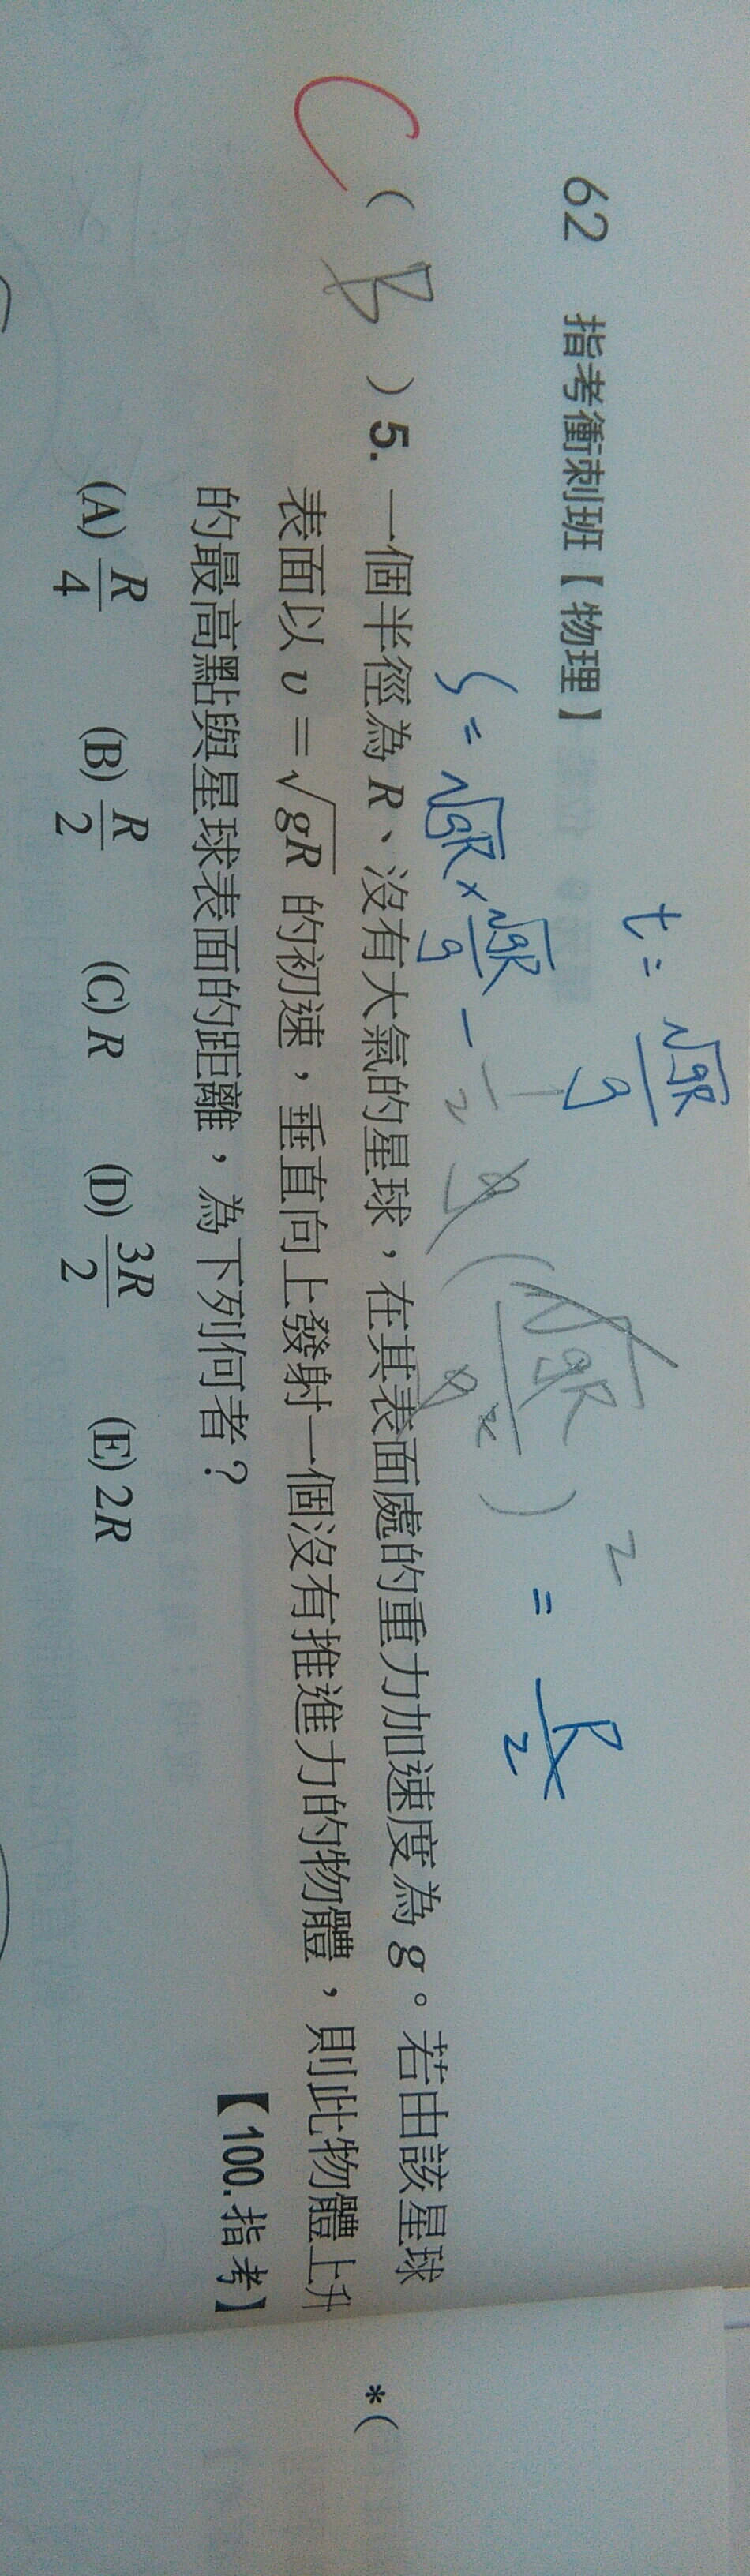 62 指考衝刺班【物理】
t = √gR / g
S = √gR × √gR / g − 1/2 g (√gR / g)² = R/2
C
( B ) 5. 一個半徑為 R、沒有大氣的星球，在其表面處的重力加速度為 g。若由該星球
表面以 v = √gR 的初速，垂直向上發射一個沒有推進力的物體，則此物體上升
的最高點與星球表面的距離，為下列何者？ 【100.指考】
(A) R/4 (B) R/2 (C) R (D) 3R/2 (E) 2R
*(